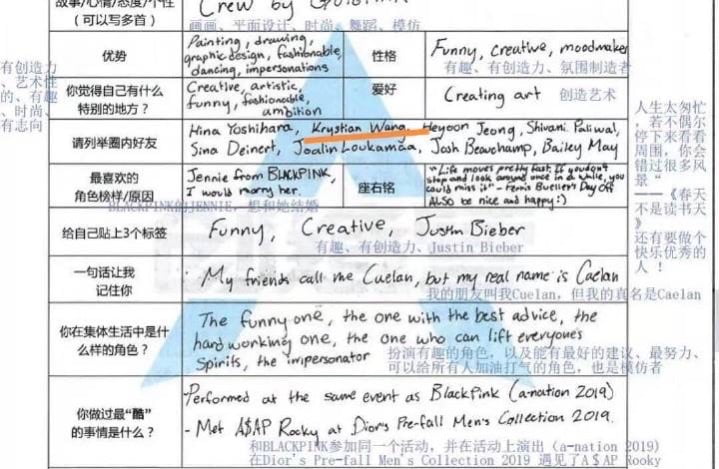 故事/心情/态度/个性 Crew by
(可以写多首)
画画、平面设计、时尚、舞蹈、模仿
优势 Painting, drawing, graphic design, fashionable, dancing, impersonations
性格 Funny, creative, moodmaker
有趣、有创造力、氛围制造者
有创造力
、艺术性
的、有趣
、时尚、
有志向
你觉得自己有什么特别的地方? Creative, artistic, funny, fashionable, ambition
爱好 Creating art 创造艺术
请列举圈内好友 Hina Yoshihara, Krystian Wang, Heyoon Jeong, Shivani Paliwal,
Sina Deinert, Joalin Loukamaa, Josh Beauchamp, Bailey May
最喜欢的角色榜样/原因 Jennie from BLACKPINK, I would marry her.
BLACKPINK的JENNIE,想和她结婚
座右铭 "Life moves pretty fast. If you don't
stop and look around once in a while, you
could miss it" - Ferris Bueller's Day Off
ALSO be nice and happy :)
人生太匆忙
,若不偶尔
停下来看看
周围,你会
错过很多风
景"
——《春天
不是读书天
》
还有要做个
快乐优秀的
人!
给自己贴上3个标签 Funny, Creative, Justin Bieber
有趣、有创造力、Justin Bieber
一句话让我记住你 My friends call me Cuelan, but my real name is Caelan
我的朋友叫我Cuelan,但我的真名是Caelan
你在集体生活中是什么样的角色? The funny one, the one with the best advice, the
hard working one, the one who can lift everyones
Spirits, the impersonator
扮演有趣的角色,以及能有最好的建议、最努力、
可以给所有人加油打气的角色,也是模仿者
你做过最“酷”的事情是什么? Performed at the same event as Blackpink (a-nation 2019)
- Met A$AP Rocky at Dior's Pre-fall Men's Collection 2019.
和BLACKPINK参加同一个活动,并在活动上演出 (a-nation 2019)
在Dior's Pre-fall Men's Collection 2019 遇见了A$AP Rooky